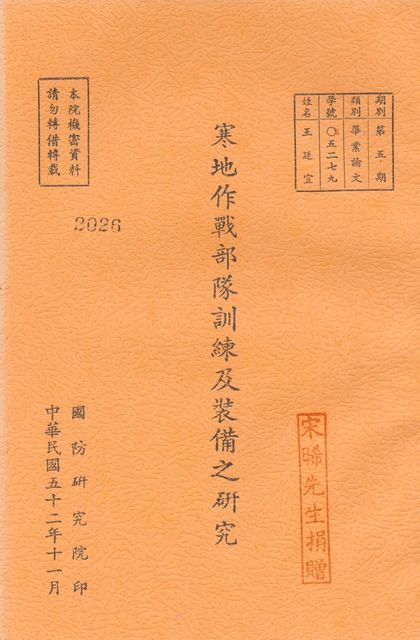 期別 第五期
類別 畢業論文
學號 〇五二七九
姓名 王廷宜
寒地作戰部隊訓練及裝備之研究
宋晞先生捐贈
本院機密資料
請勿轉借轉載
2026
國防研究院印
中華民國五十二年十一月